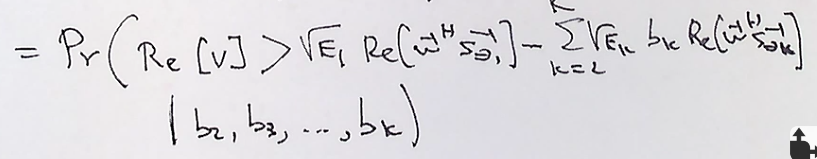 = Pr( Re[V] > √E₁ Re[w⃗ᴴ s⃗_θ₁] - ∑_{k=2}^{K} √E_k b_k Re[w⃗ᴴ s⃗_θk]
| b₂, b₃, ..., b_K )